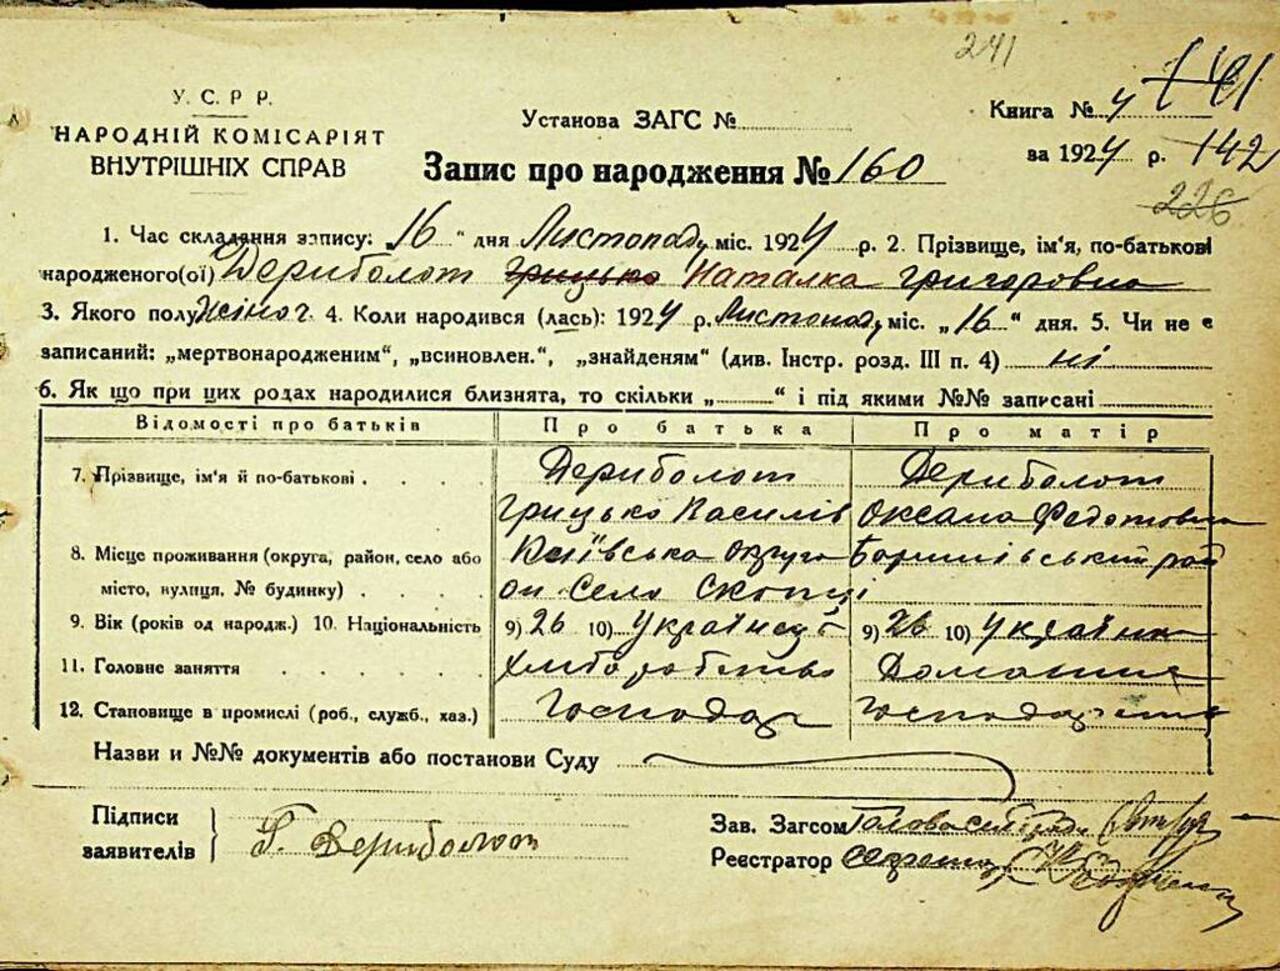 241
У.С.Р.Р.
НАРОДНІЙ КОМІСАРІЯТ
ВНУТРІШНІХ СПРАВ
Установа ЗАГС №
Книга № 4 141
за 1924 р. 142
226
Запис про народження № 160
1. Час складання запису: „16" дня Листопаду міс. 1924 р. 2. Прізвище, ім'я, по-батькові
народженого(ої) Дериболот Грицько Наталка Григоровна
3. Якого полу Жіноч. 4. Коли народився (лась): 1924 р. Листопаду міс. „16" дня. 5. Чи не є
записаний: „мертвонародженим", „всиновлен.", „знайденям" (див. Інстр. розд. III п. 4) ні
6. Як що при цих родах народилися близнята, то скільки „ " і під якими №№ записані
Відомості про батьків Про батька Про матір
7. Прізвище, ім'я й по-батькові Дериболот Дериболот
Грицько Василів Оксана Федотовна
8. Місце проживання (округа, район, село або Київська округа Баришівський рай
місто, вулиця, № будинку) он село Скопці
9. Вік (років од народж.) 10. Національність 9) 26 10) Українець 9) 26 10) Українка
11. Головне заняття Хліборобство Домашнє
12. Становище в промислі (роб., служб., хаз.) Господар Господарство
Назви и №№ документів або постанови Суду
Підписи
заявителів Г. Дериболот
Зав. Загсом Голова сільради
Реєстратор секретар